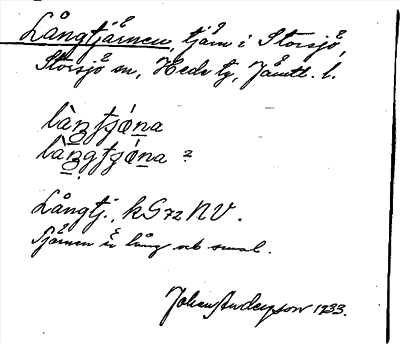 Långtjärnen, tjärn i Storsjö,
Storsjö sn, Hede tg, Jämtl. l.
làngtjǿna
làngtjǿna ?
Långtj., kS72 NV.
Tjärnen är lång och smal.
Johan Anderson 1933.